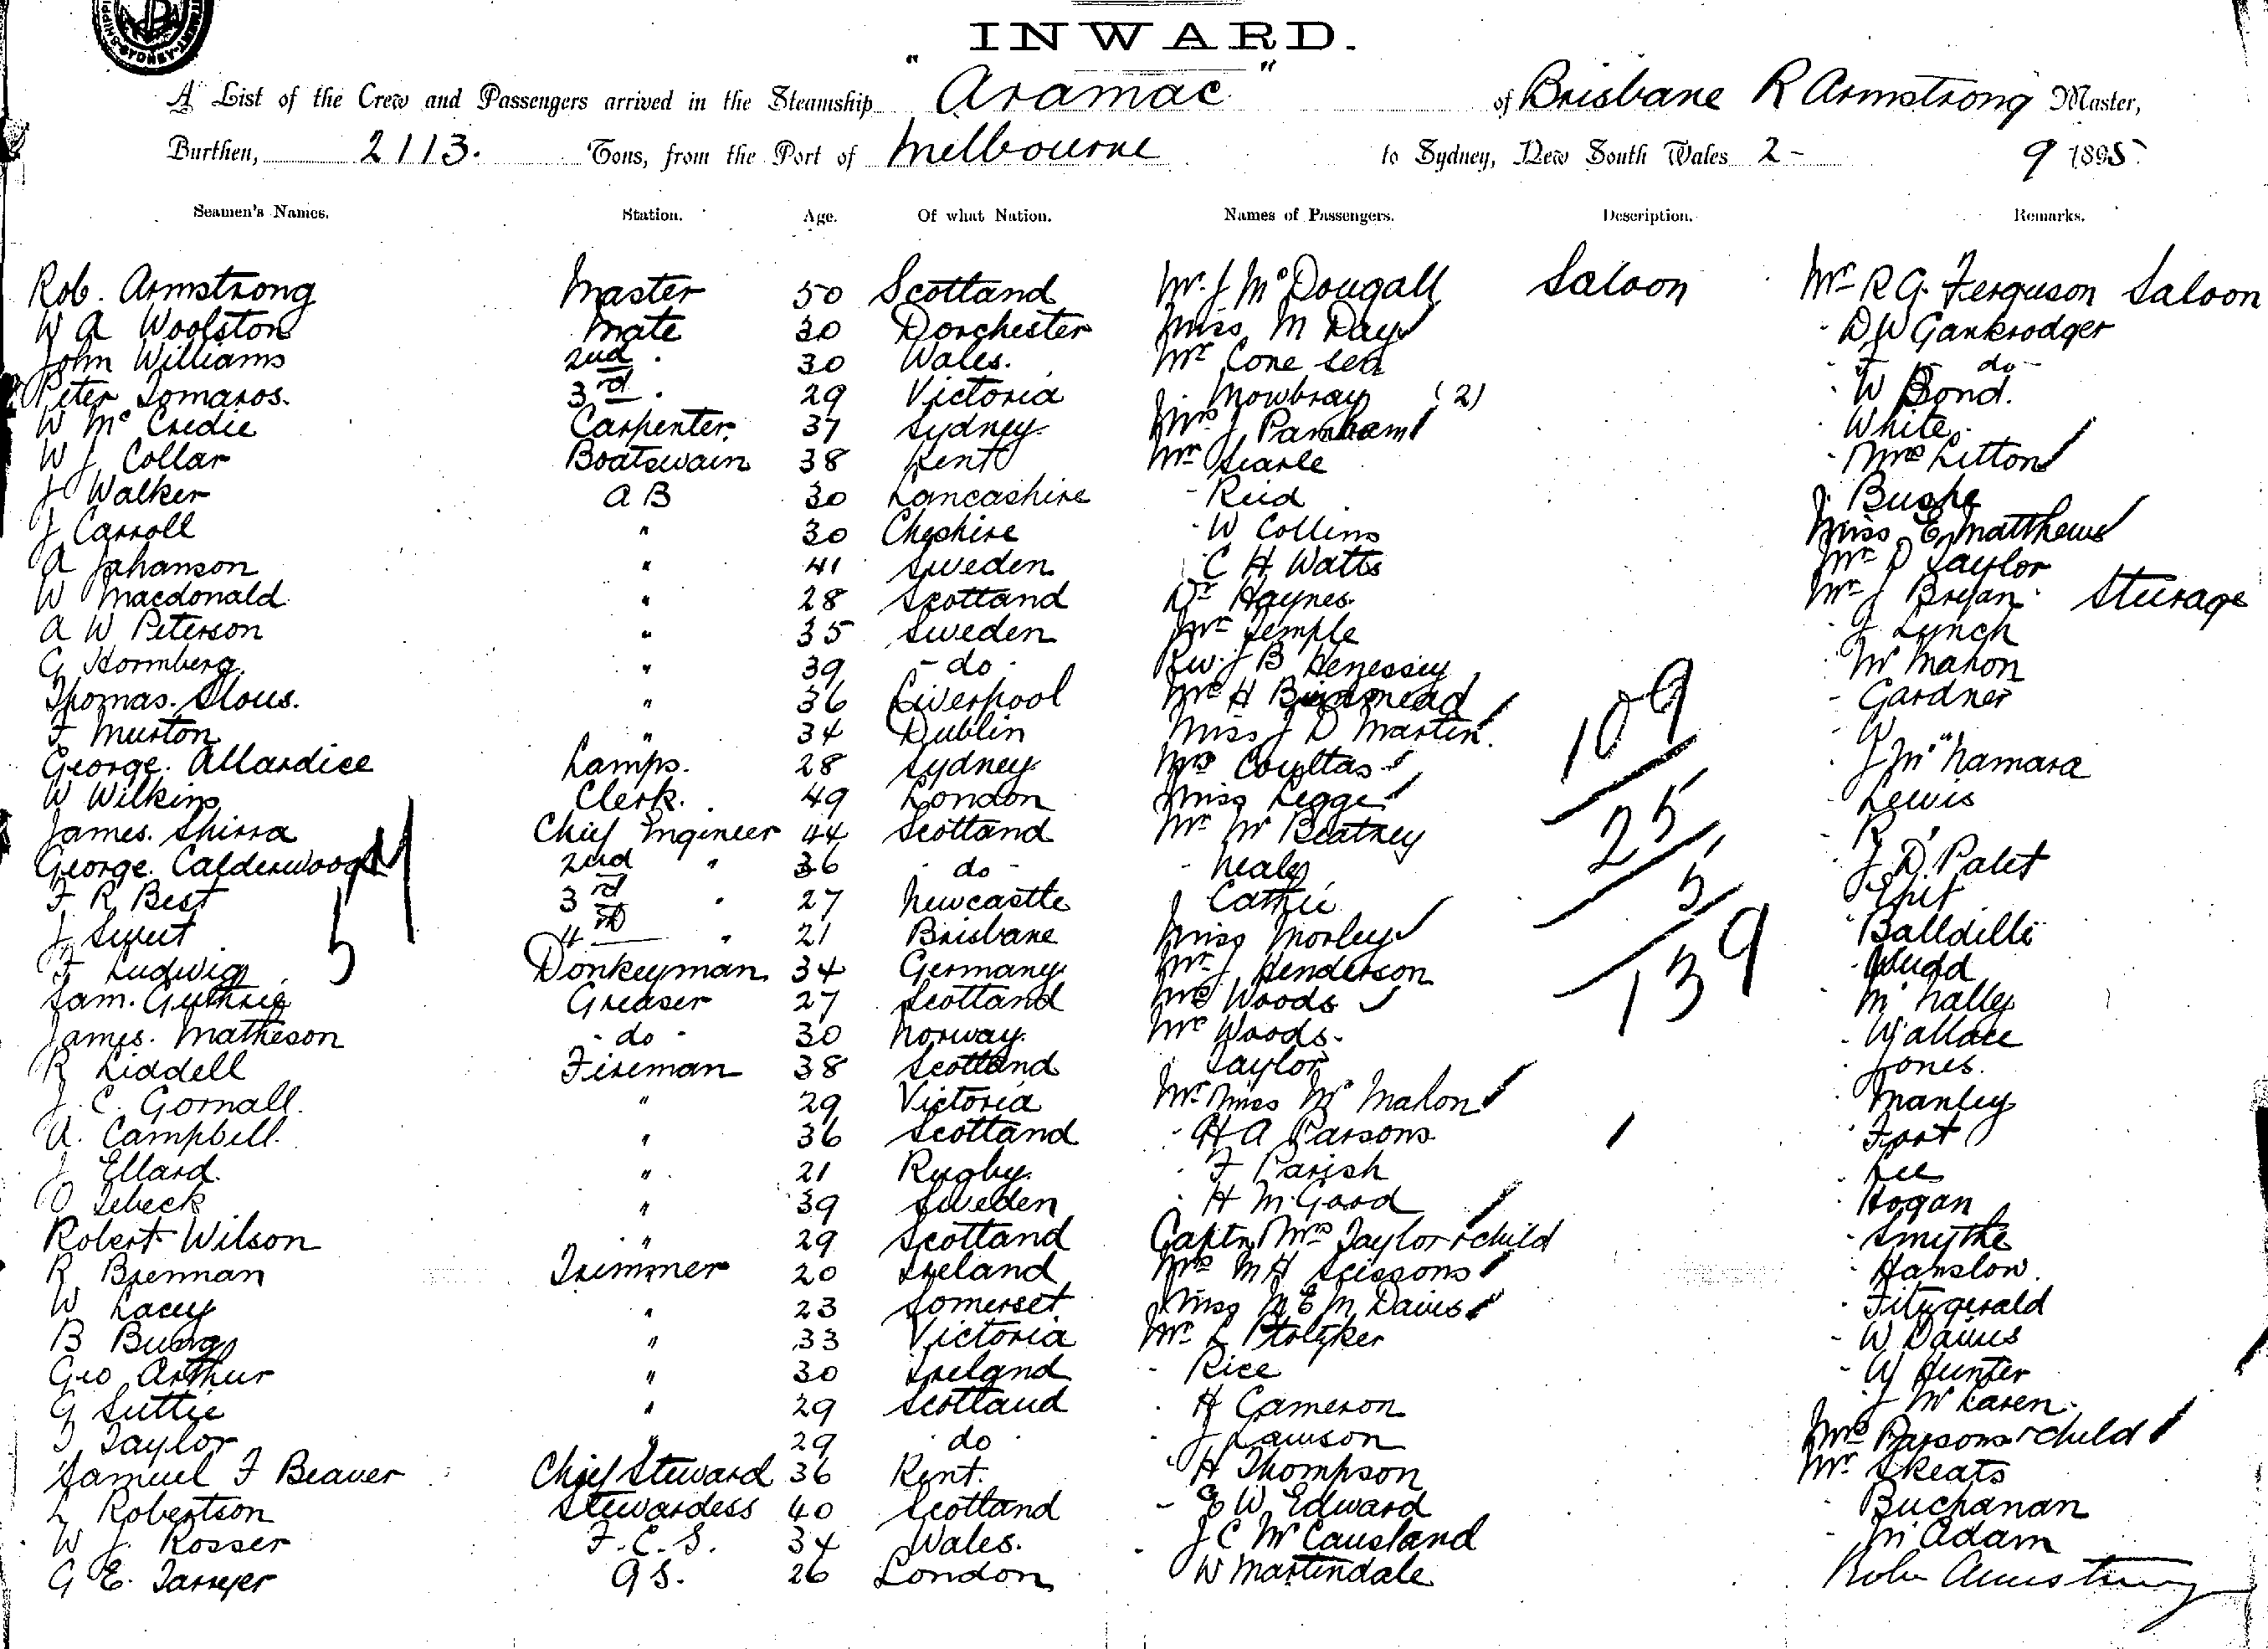 INWARD.
A List of the Crew and Passengers arrived in the Steamship "Aramac" of Brisbane R Armstrong Master,
Burthen, 2113. Tons, from the Port of Melbourne to Sydney, New South Wales 2- 9 1895.
Seamen's Names. Station. Age. Of what Nation. Names of Passengers. Description. Remarks.
Rob. Armstrong Master 50 Scotland Mr. J McDougall Saloon Mr R G. Ferguson Saloon
W A Woolston Mate 30 Dorchester Miss M Day D W Gankrodger
John Williams 2nd " 30 Wales. Mr Cone Sen J do
Peter Tomaros. 3rd " 29 Victoria Mowbray (2) W Bond.
W McCredie Carpenter 37 Sydney Mrs J Parnham White
W J Collar Boatswain 38 Kent Mr Searle Mrs Litton
J Walker A B 30 Lancashire - Reid J. Bushe
J Carroll " 30 Cheshire - W Collins Miss E Matthews
A Johanson " 41 Sweden C H Watts Mr D Taylor
W Macdonald " 28 Scotland Dr Haynes. Mr J Bryan Steerage
A W Peterson " 35 Sweden Mr Temple J Lynch
G Hormberg " 39 - do - Rev. J B Henessey McMahon
Thomas. Slous. " 36 Liverpool Mr H Brinsmead - Gardner
F Murton " 34 Dublin Miss J D Martin W "
George. Allardice Lamps. 28 Sydney Mrs Coultas J McNamara
W Wilkins Clerk. 49 London Miss Legge Lewis
James. Shirra Chief Engineer 44 Scotland Mr McBeatney R "
George. Calderwood 2nd " 36 - do - - Healey J D Palet
F R Best 3rd " 27 Newcastle J Cathie
J Sweet 4th " 21 Brisbane Miss Morley Balldilli
F Ludwig Donkeyman 34 Germany Mr J Henderson - Mudd
Sam. Guthrie Greaser 27 Scotland Mrs Woods McNalley
James. Matheson - do - 30 Norway Mr Woods. - Wallace
R Liddell Fireman 38 Scotland Taylor Jones.
J. C. Gornall. " 29 Victoria Mr Miss McMahon Manley
A. Campbell. " 36 Scotland - H A Parsons Fort
J Ellard. " 21 Rugby - F Parish Lee
O Lebeck " 39 Sweden H M Good Hogan
Robert Wilson " 29 Scotland Captn Mrs Taylor & child - Smythe
R Brennan Trimmer 20 Ireland Mrs M H Scissons Hanslow.
W Lacey " 23 Somerset Miss M E M Davis Fitzgerald
B Burg " 33 Victoria Mr L Stolyker - W Davies
Geo Arthur " 30 Ireland - Rice - W Hunter
G Suttie " 29 Scotland - H Cameron J McLaren.
T Taylor " 29 do J Lawson Mrs Parsons & child
Samuel F Beaver Chief Steward 36 Kent. H Thompson Mr. Skeats
L Robertson Stewardess 40 Scotland - E W Edward Buchanan
W J. Rosser F. C. S. 34 Wales. J C McCausland - McAdam
G E. Tarryer G S. 26 London W Martindale Robt Armstrong
109
25
5
139